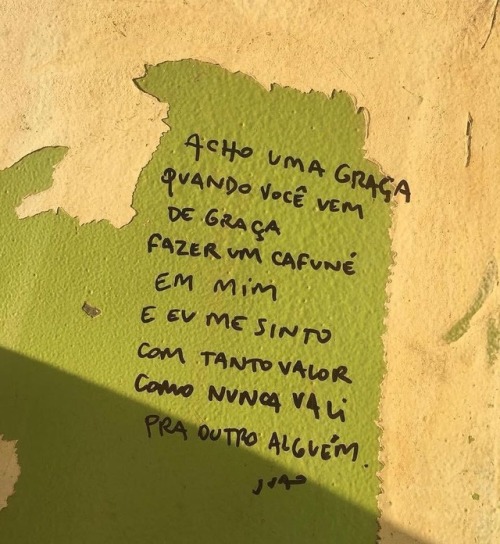 ACHO UMA GRAÇA
QUANDO VOCÊ VEM
DE GRAÇA
FAZER UM CAFUNÉ
EM MIM
E EU ME SINTO
COM TANTO VALOR
COMO NUNCA VALI
PRA OUTRO ALGUÉM.